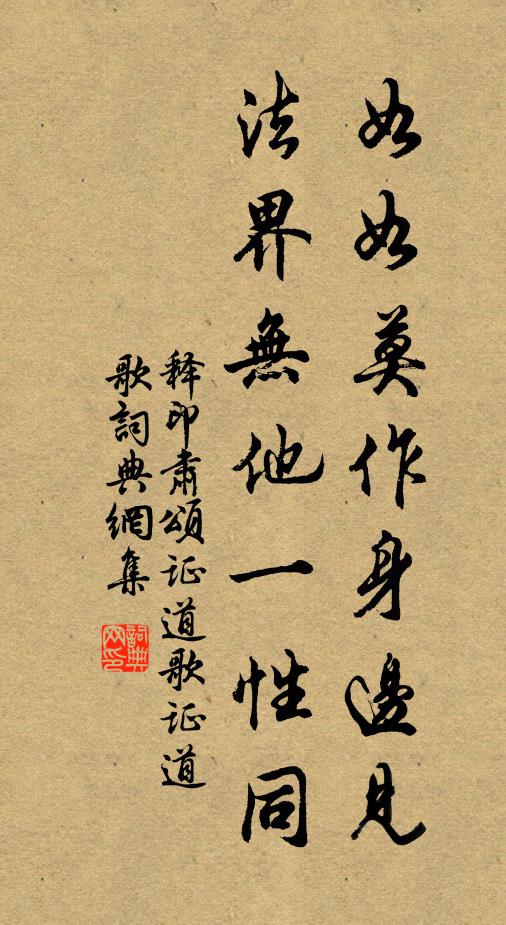 如如莫作身邊見
法界無他一性同
释印肅頌证道歌证道
歌詞典網集
詞典网印